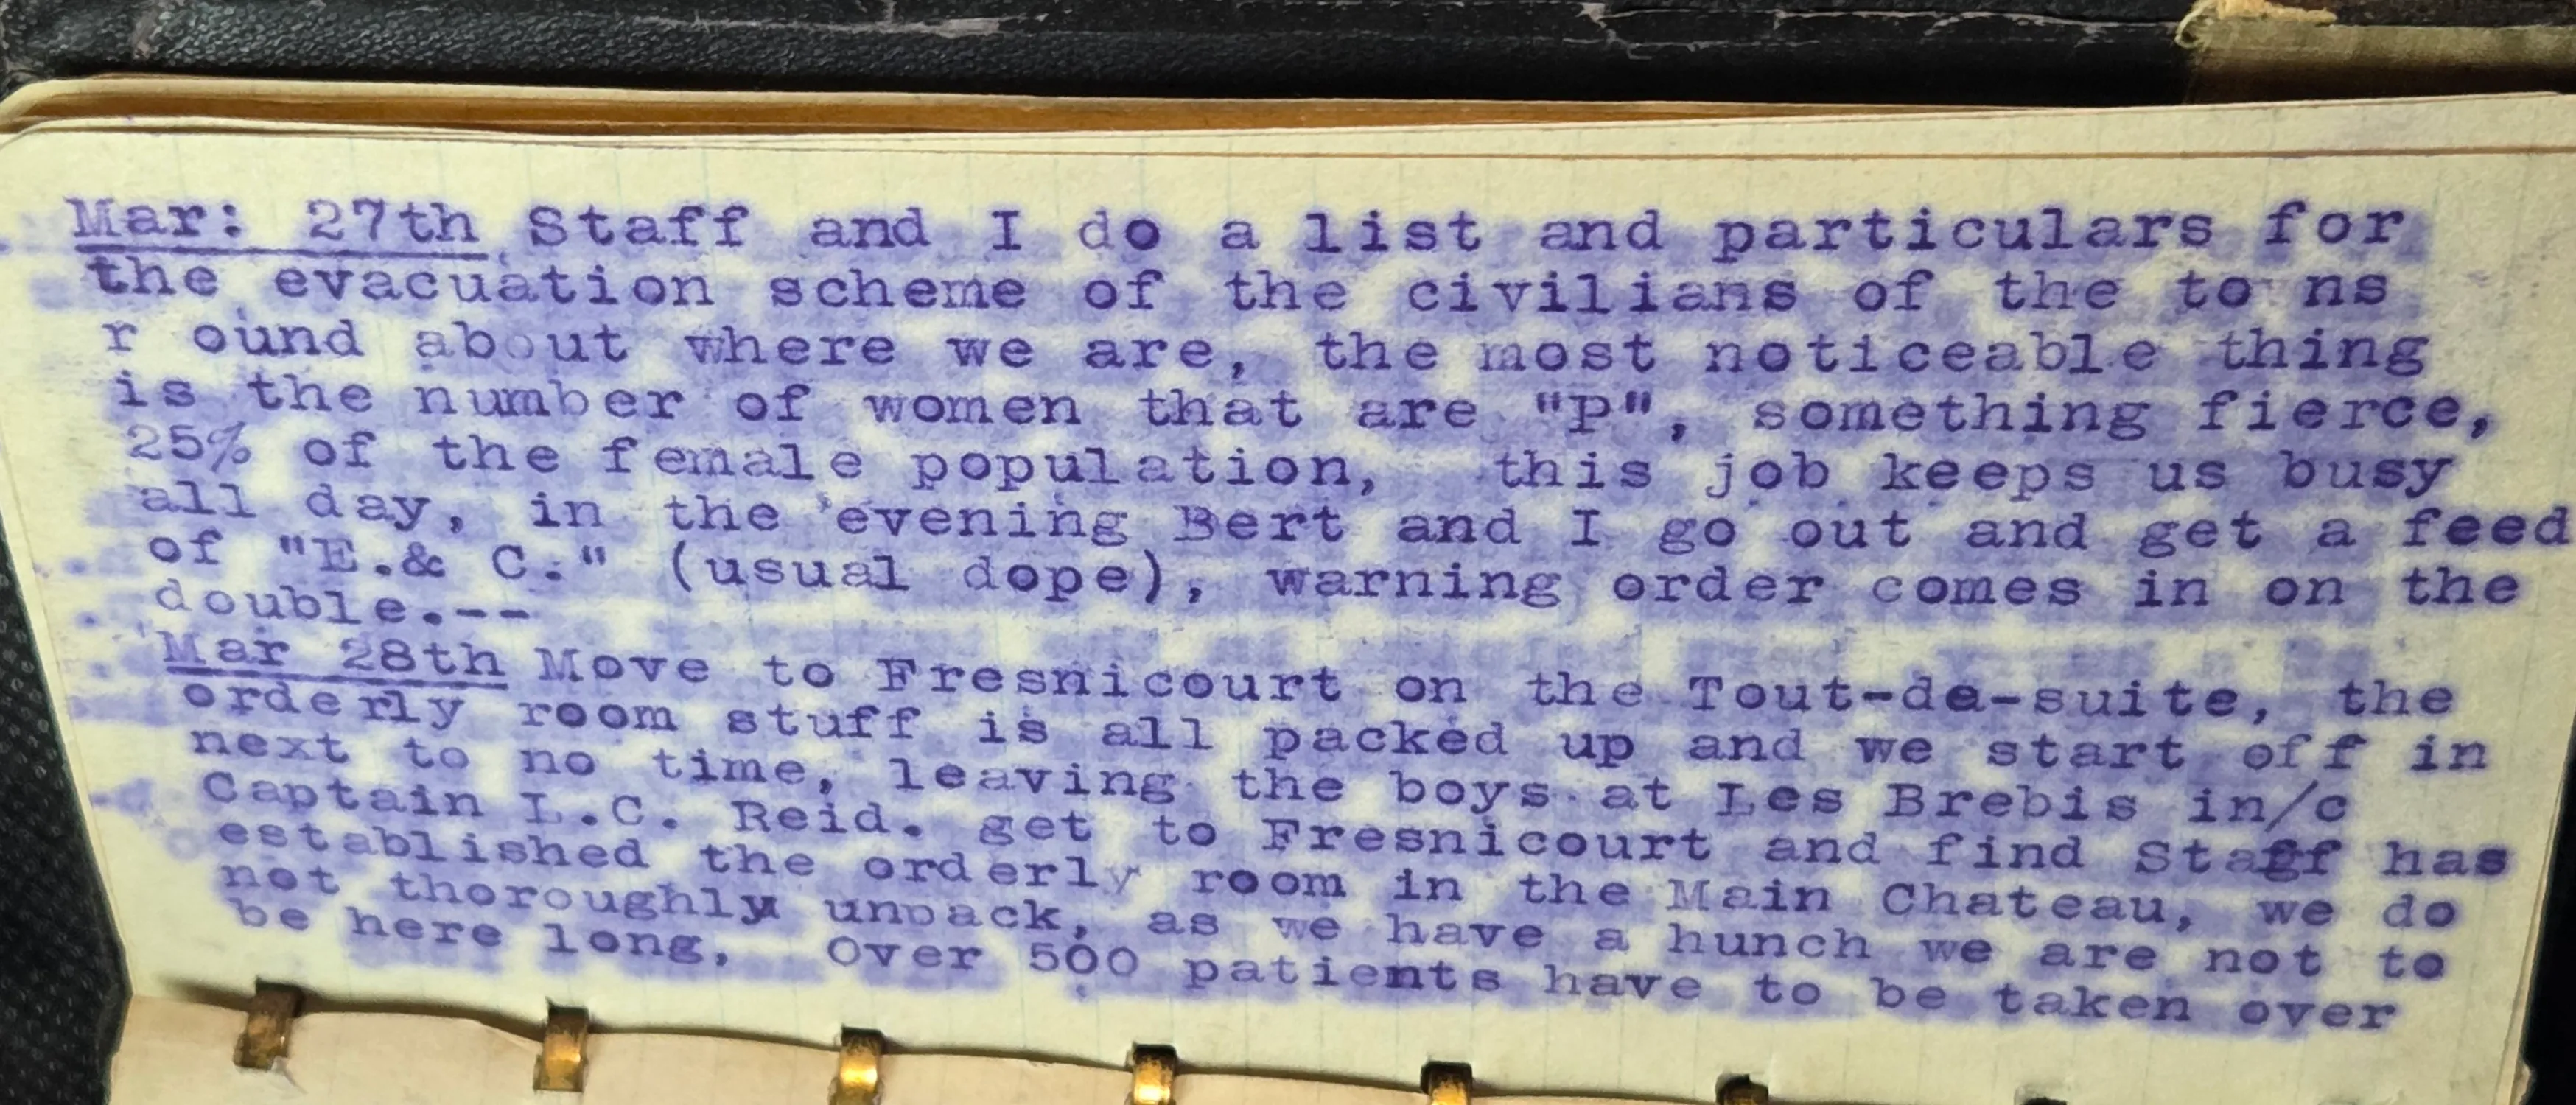 Mar: 27th Staff and I do a list and particulars for
the evacuation scheme of the civilians of the to ns
r ound about where we are, the most noticeable thing
is the number of women that are "P", something fierce,
25% of the female population,  this job keeps us busy
all day, in the evening Bert and I go out and get a feed
of "E.& C." (usual dope), warning order comes in on the
double.--
Mar 28th Move to Fresnicourt on the Tout-de-suite, the
orderly room stuff is all packed up and we start off in
next to no time, leaving the boys at Les Brebis in/c
Captain L.C. Reid. get to Fresnicourt and find Staff has
established the orderly room in the Main Chateau, we do
not thoroughly unpack, as we have a hunch we are not to
be here long,  Over 500 patients have to be taken over